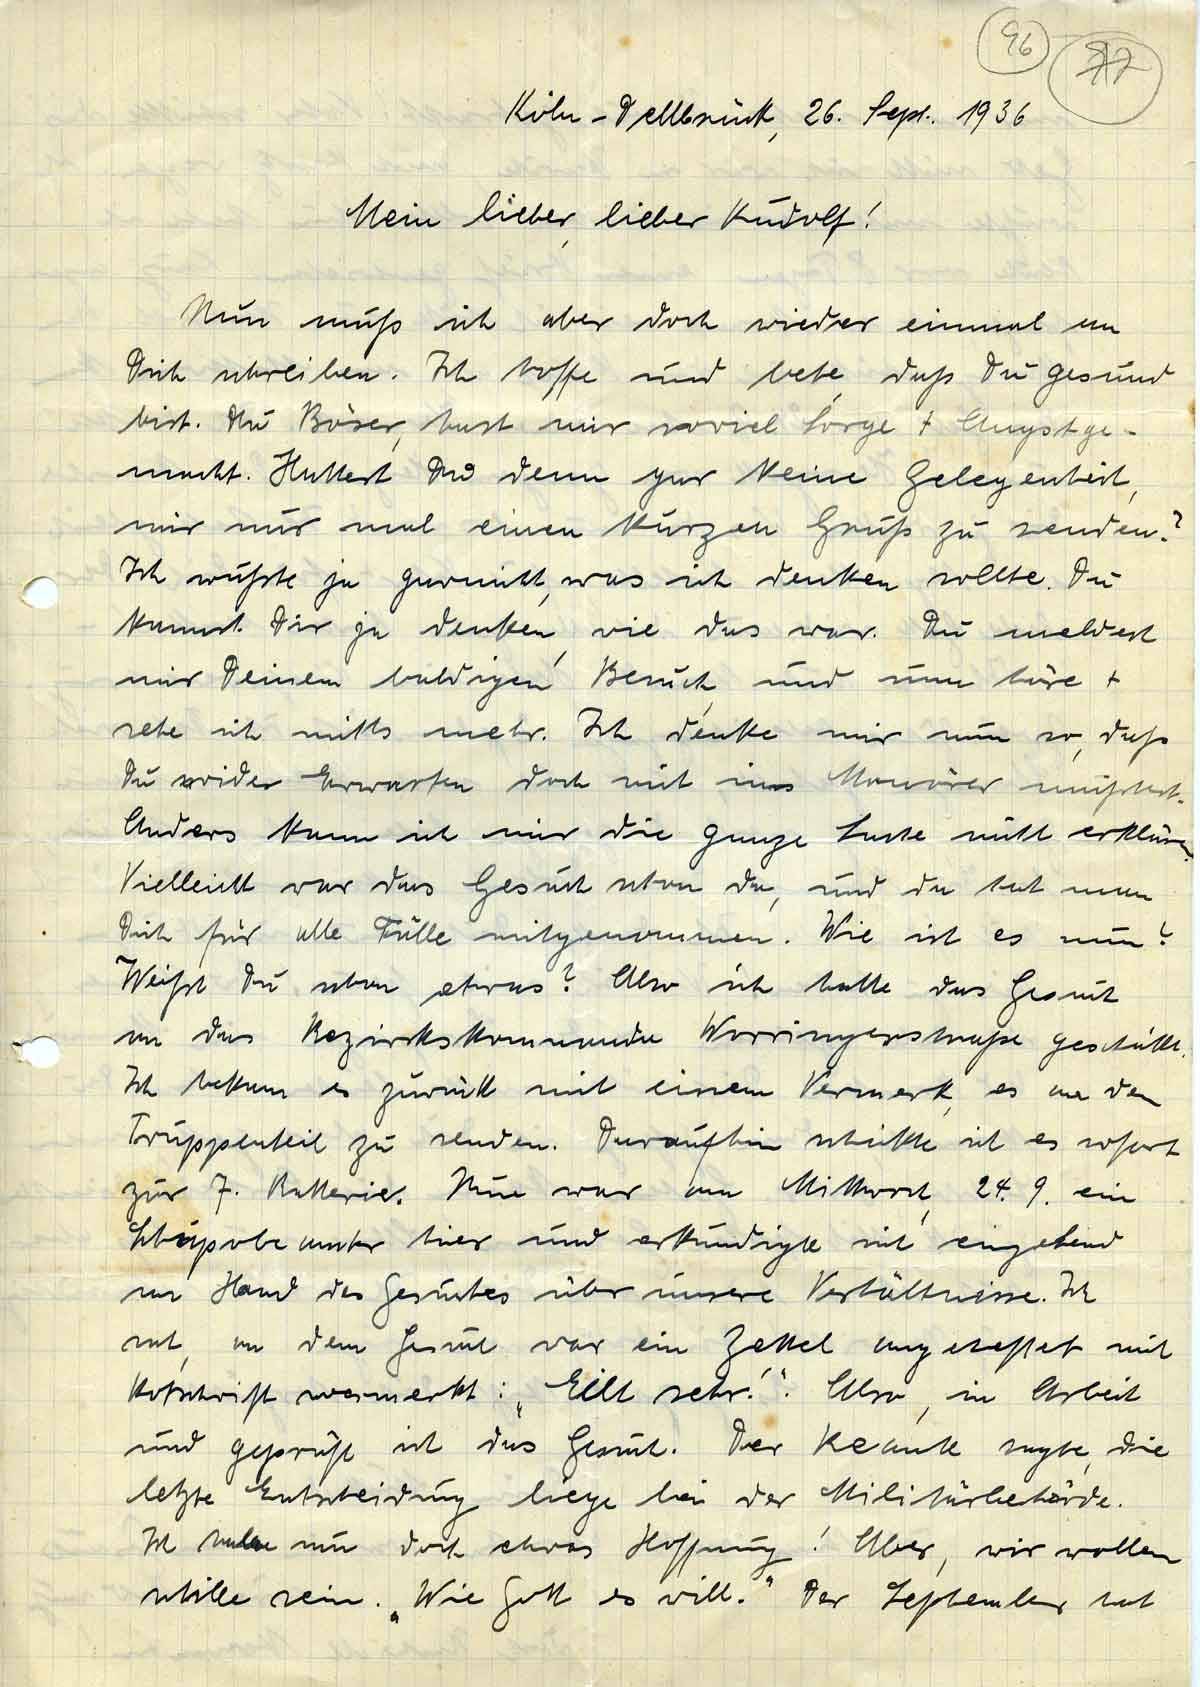 96
Köln-Dellbrück, 26. Sept. 1936
Mein lieber, lieber Rudolf!
Nun muß ich aber doch wieder einmal an
Dich schreiben. Ich hoffe und bete, daß Du gesund
bist. Du Böser, hast mir soviel Sorge + Angst ge-
macht. Hattest Du denn gar keine Gelegenheit,
mir nur mal einen kurzen Gruß zu senden?
Ich wußte ja garnicht, was ich denken sollte. Du
kannst Dir ja denken, wie das war. Du meldest
mir Deinen baldigen Besuch, und nun höre +
sehe ich nichts mehr. Ich denke mir nun so, daß
Du wider Erwarten doch mit ins Manöver mußtest.
Anders kann ich mir die ganze Sache nicht erklären.
Vielleicht war das Gesuch schon da, und da hat man
Dich für alle Fälle mitgenommen. Wie ist es nun?
Weißt Du schon etwas? Also ich hatte das Gesuch
an das Bezirkskommando Worringerstraße geschickt.
Ich bekam es zurück mit einem Vermerk, es an den
Truppenteil zu senden. Daraufhin schickte ich es sofort
zur 7. Batterie. Nun war am Mittwoch, 24. 9. ein
hier und erkundigte sich eingehend
an Hand des Gesuches über unsere Verhältnisse. Ich
sah, an dem Gesuch war ein Zettel angeheftet mit
Rotschrift vermerkt: „Eilt sehr!". Also, in Arbeit
und geprüft ist das Gesuch. Der Beamte sagte, die
letzte Entscheidung liege bei der Militärbehörde.
Ich habe nun doch etwas Hoffnung! Aber, wir wollen
stille sein. „Wie Gott es will." Der September hat